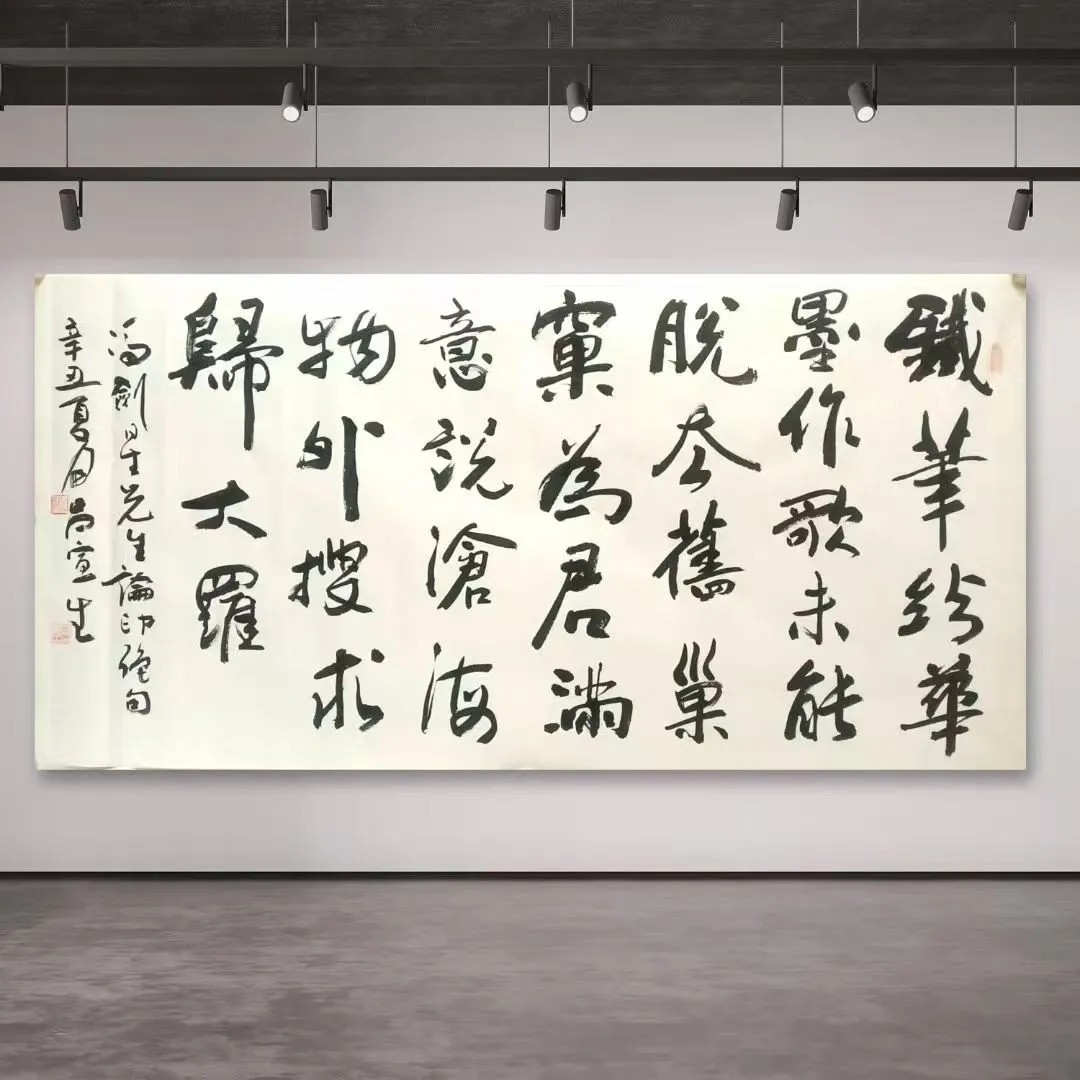 鐵筆紛華
墨作歌未能
脫去舊巢
窠為君滿
意說滄海
物外搜求
歸大羅
馮劍星先生論印絕句
辛丑夏月呂宣生